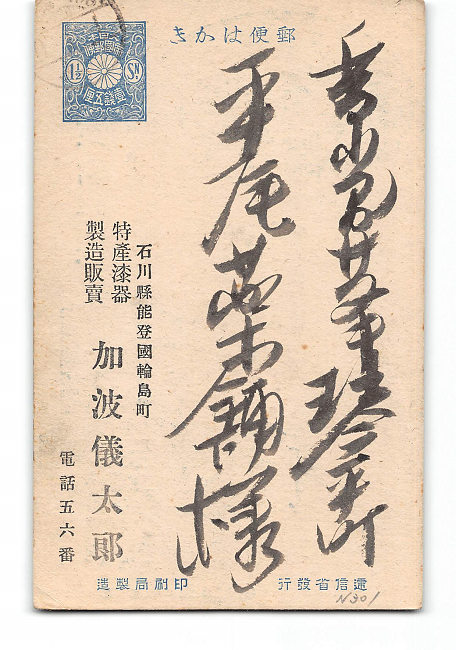 郵便はかき
1½ Sn
壹錢五厘
琴平町
平尾薬舗様
石川縣能登國輪島町
特產漆器
製造販賣
加波儀太郎
電話五六番
遞信省發行
印刷局製造
N301